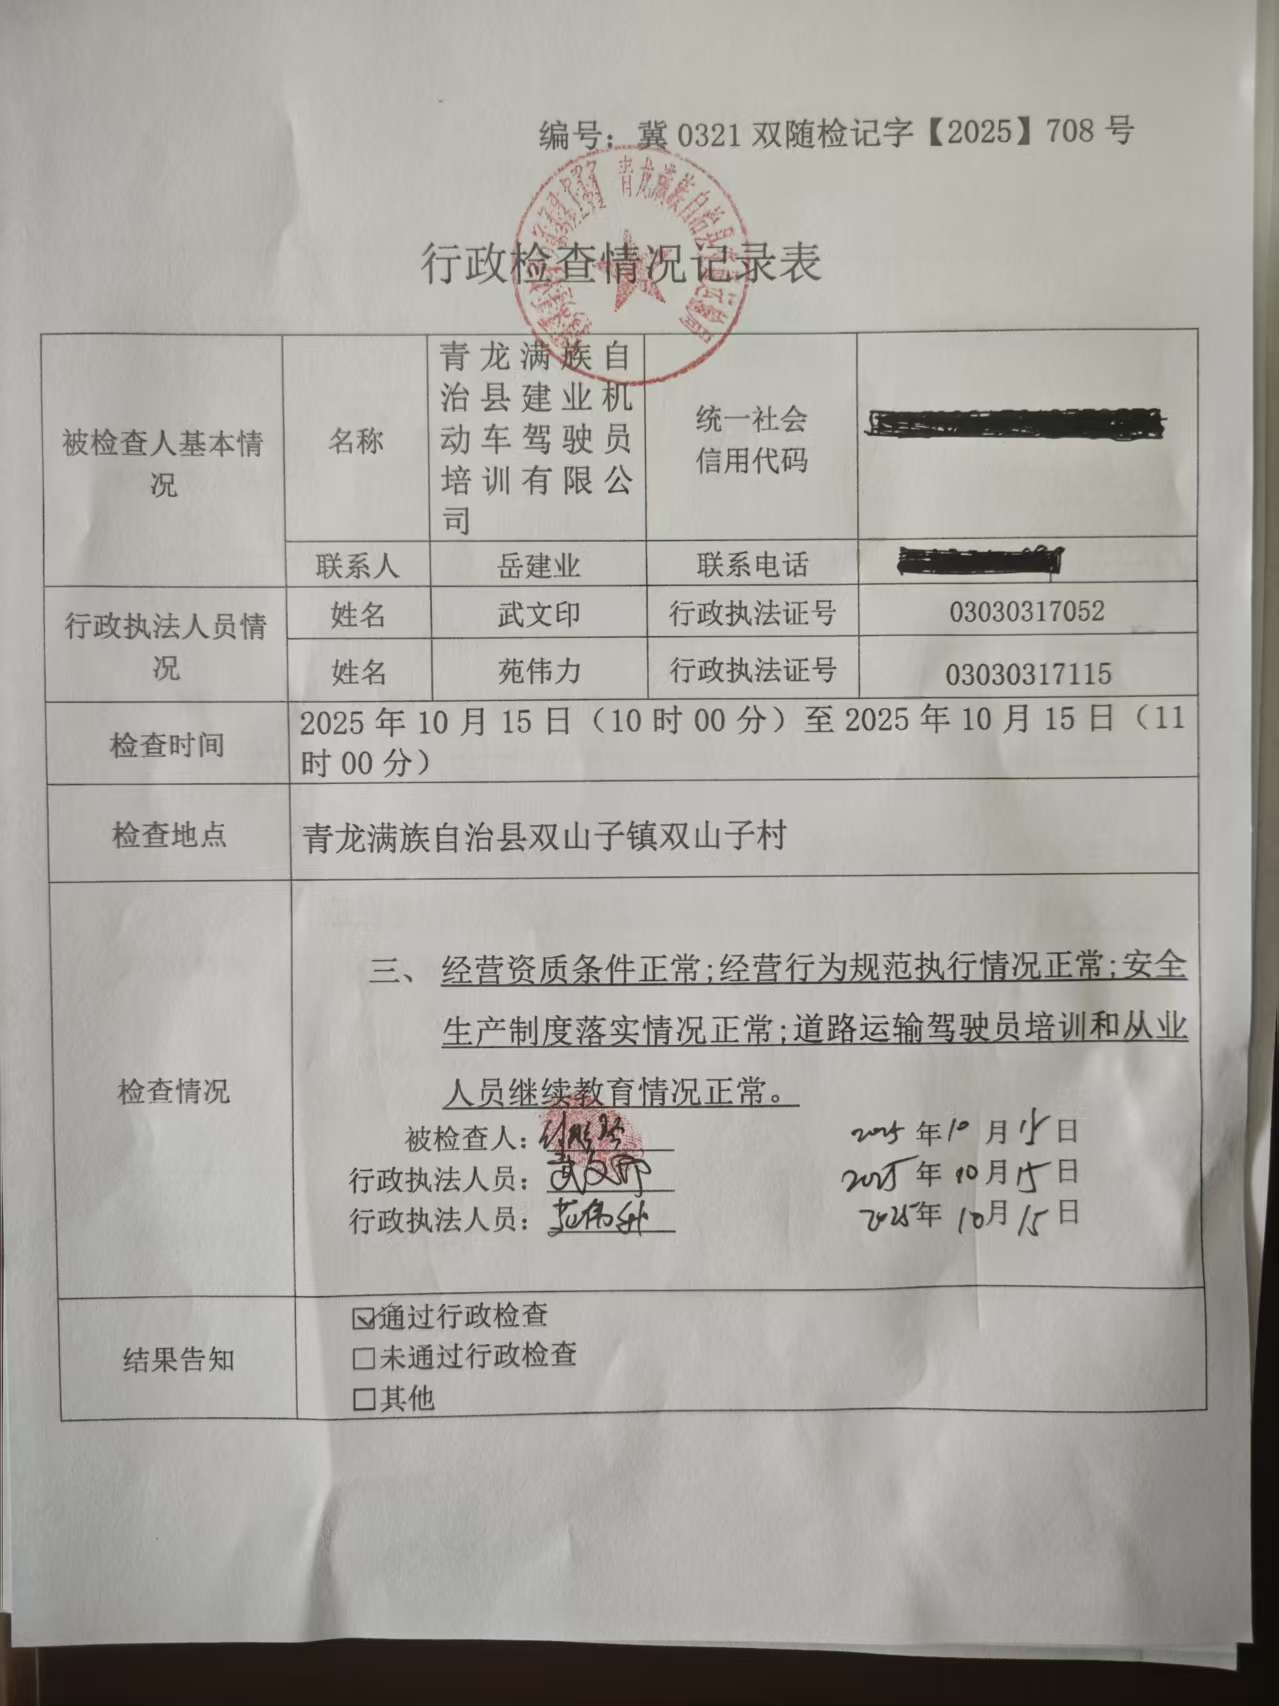 编号：冀 0321 双随检记字【2025】708 号
青龙满族自治县
行政检查情况记录表
被检查人基本情
况
名称
青龙满族自
治县建业机
动车驾驶员
培训有限公
司
统一社会
信用代码
联系人
岳建业
联系电话
行政执法人员情
况
姓名
武文印
行政执法证号
03030317052
姓名
苑伟力
行政执法证号
03030317115
检查时间
2025 年 10 月 15 日（10 时 00 分）至 2025 年 10 月 15 日（11
时 00 分）
检查地点
青龙满族自治县双山子镇双山子村
检查情况
三、 经营资质条件正常;经营行为规范执行情况正常;安全
生产制度落实情况正常;道路运输驾驶员培训和从业
人员继续教育情况正常。
被检查人： 2025 年 10 月 15 日
行政执法人员：武文印 2025 年 10 月 15 日
行政执法人员：苑伟力 2025 年 10 月 15 日
结果告知
☑通过行政检查
□未通过行政检查
□其他